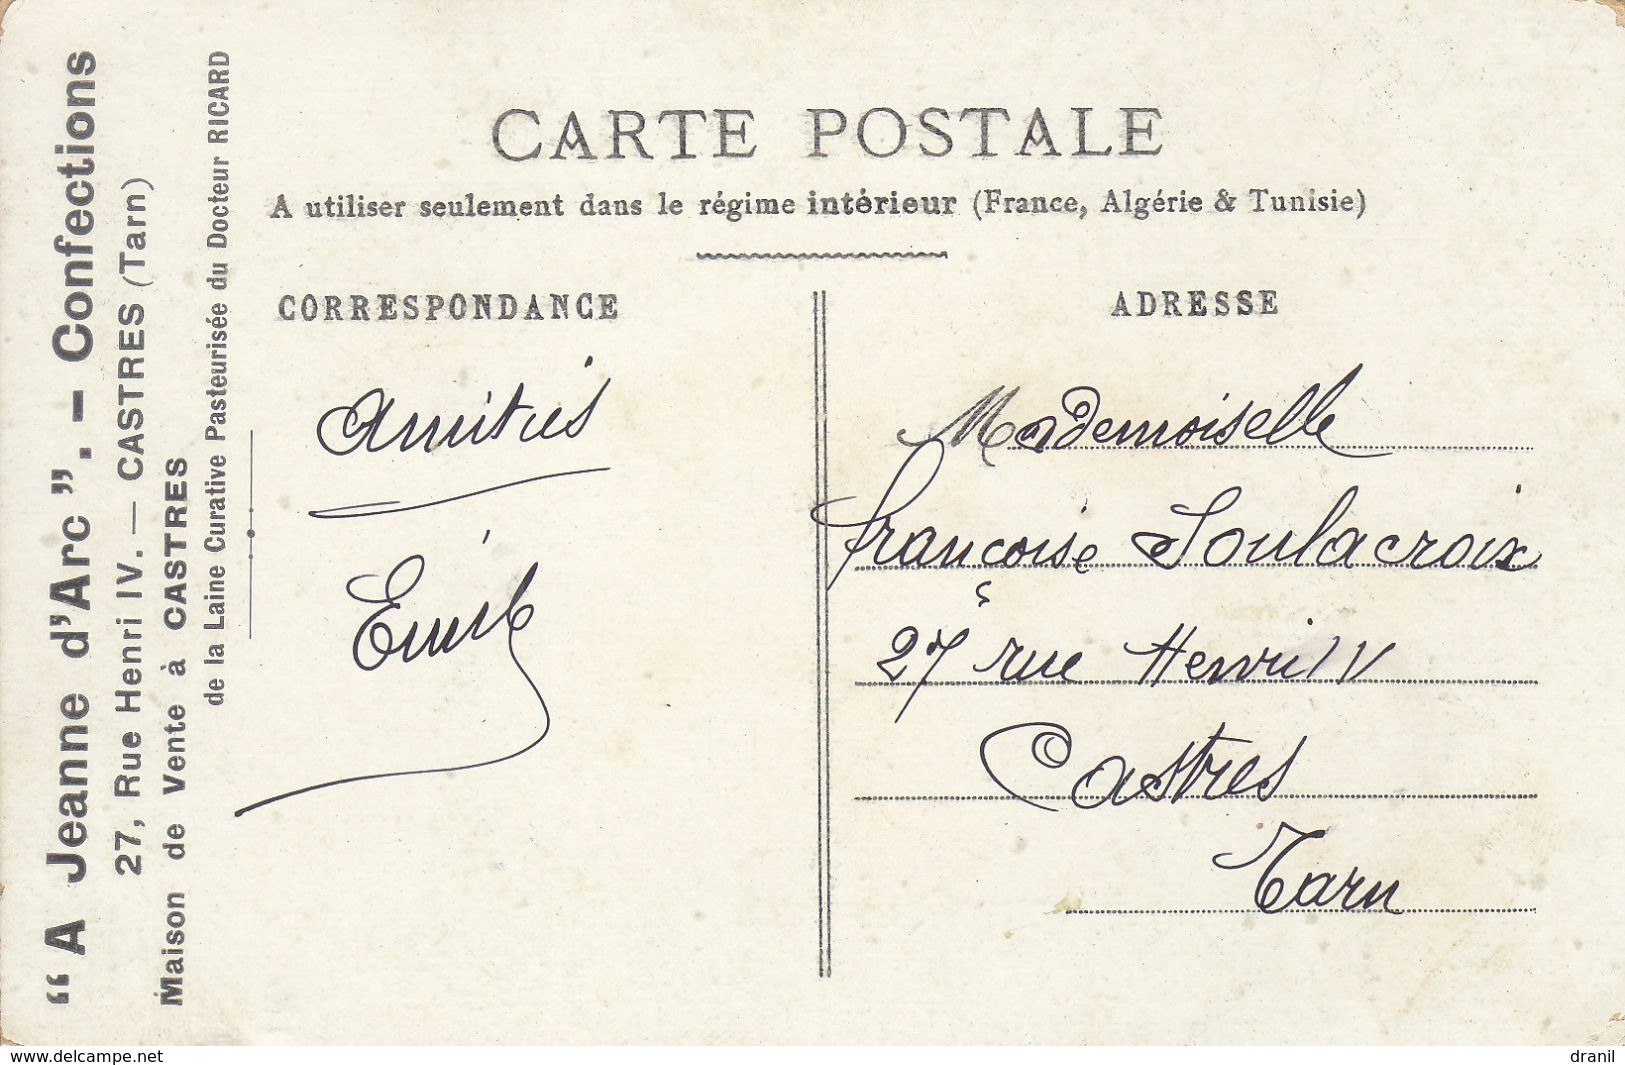 “A Jeanne d'Arc”. — Confections
27, Rue Henri IV. — CASTRES (Tarn)
Maison de Vente à CASTRES
de la Laine Curative Pasteurisée du Docteur RICARD
CARTE POSTALE
A utiliser seulement dans le régime intérieur (France, Algérie & Tunisie)
CORRESPONDANCE
Amitiés
Emile
ADRESSE
Mademoiselle
Françoise Soulacroix
27 rue Henri IV
Castres
Tarn
www.delcampe.net
dranil